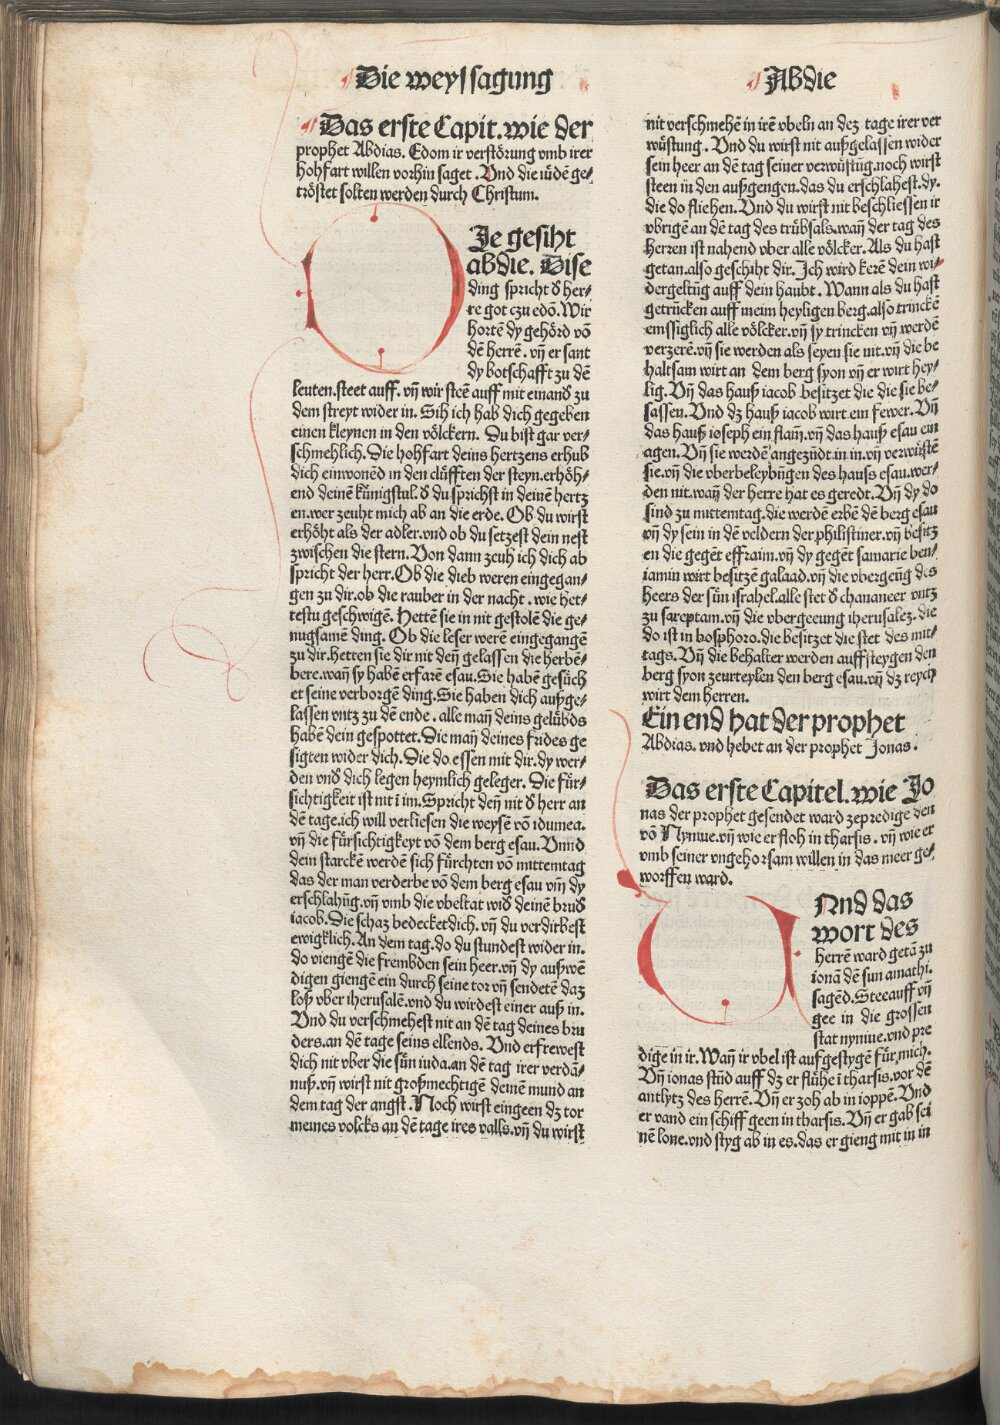 Die weyssagung
Abdie
Das erste Capit. wie der
prophet Abdias. Edom ir verstörung vmb irer
hohfart willen vorhin saget. Vnd die iüdē ge⸗
tröstet solten werden durch Christum.
Je gesiht
abdie. Dise
ding spricht d̕ her⸗
re got czu edō. Wir
hortē dy gehörd vō
dē herrē. vn̄ er sant
dy botschafft zu dē
leuten. steet auff. vn̄ wir steē auff mit einand̕ zu
dem streyt wider in. Sih ich hab dich gegeben
einen kleynen in den völckern. Du bist gar ver⸗
schmehlich. Die hohfart deins hertzens erhub
dich einwonēd in den clüfften der steyn. erhöh⸗
end deinē künigstul. d̕ du sprichst in deinē hertz
en. wer zeuht mich ab an die erde. Ob du wirst
erhöht als der adler. vnd ob du setzest dein nest
zwischen die stern. Von dann zeuh ich dich ab
spricht der herr. Ob die dieb weren eingegan⸗
gen zu dir. ob die rauber in der nacht. wie het⸗
testu geschwigē. Hettē sie in nit gestolē die ge⸗
nugsamē ding. Ob die leser werē eingegangē
zu dir. hetten sie dir nit den̄ gelassen die herbē⸗
bere. wan̄ sy habē erfarē esau. Sie habē gesüch
et seine verborgē ding. Sie haben dich außge⸗
lassen vntz zu dē ende. alle man̄ deins gelübds
habē dein gespottet. Die man̄ deines frides ge
sigten wider dich. Die do essen mit dir. dy wer⸗
den vnd̕ dich legen heymlich geleger. Die für⸗
sichtigkeit ist nit i im. Spricht den̄ nit d̕ herr an
dē tage. ich will verliesen die weysē vō idumea.
vn̄ die fürsichtigkeyt vō dem berg esau. Vnnd
dein starckē werdē sich fürchten vō mittemtag
das der man verderbe vō dem berg esau vn̄ dy
erschlahūg. vn̄ vmb die vbeltat wid̕ deinē brud̕
iacob. Die schaz bedecket dich. vn̄ du verdirbest
ewigklich. An dem tag. do du stundest wider in.
do viengē die frembden sein heer. vn̄ dy außwē
digen giengē ein durch seine tor vn̄ sendetē daz
loß vber iherusalē. vnd du wirdest einer auß in.
Vnd du verschmehest nit an dē tag deines bru
ders. an dē tage seins ellends. Vnd erfrewest
dich nit vber die sün iuda. an dē tag irer verdā⸗
nuß. vn̄ wirst nit großmechtigē deinē mund an
dem tag der angst. Noch wirst eingeen dz tor
meines volcks an dē tage ires valls. vn̄ du wirst
nit verschmehē in irē vbeln an dez tage irer ver
wüstung. Vnd du wirst nit außgelassen wider
sein heer an dē tag seiner verwüstūg. noch wirst
steen in den außgengen. das du erschlahest. dy.
die do fliehen. Vnd du wirst nit beschliessen ir
vbrigē an dē tag des trübsals. wan̄ der tag des
herren ist nahend vber alle völcker. Als du hast
getan. also geschiht dir. Ich wird kerē dein wi⸗
dergeltūg auff dein haubt. Wann als du hast
getrūcken auff meim heyligen berg. also trinckē
emssiglich alle völcker. vn̄ sy trincken vn̄ werdē
verzerē. vn̄ sie werden als seyen sie nit. vn̄ die be
haltsam wirt an dem berg syon vn̄ er wirt hey⸗
lig. Vn̄ das hauß iacob besitzet die die sie be⸗
sassen. Vnd dz hauß iacob wirt ein fewer. Vn̄
das hauß ioseph ein flam̄. vn̄ das hauß esau ein
agen. Vn̄ sie werdē angezūdt in in. vn̄ verwüstē
sie. vn̄ die vberbeleybūgen des hauss esau. wer⸗
den nit. wan̄ der herre hat es geredt. Vn̄ dy do
sind zu mittemtag. die werdē erbē dē berg esau
vn̄ dy sein in dē veldern der philistiner. vn̄ besitz
en die gegēt effraim. vn̄ dy gegēt samarie ben⸗
iamin wirt besitzē galaad. vn̄ die vbergeūg des
heers der sün israhel. alle stet d̕ chananeer vntz
zu sareptam. vn̄ die vbergeeung iherusalez. die
do ist in bosphoro. die besitzet die stet des mit⸗
tags. Vn̄ die behalter werden auffsteygen den
berg syon zeurteylen den berg esau. vn̄ dz reych
wirt dem herren.
Ein end hat der prophet
Abdias. vnd hebet an der prophet Jonas.
Das erste Capitel. wie Jo
nas der prophet gesendet ward zepredige den
vō Nyniue. vn̄ wie er floh in tharsis. vn̄ wie er
vmb seiner vngehorsam willen in das meer ge⸗
worffen ward.
Vnd das
wort des
herrē ward getā zu
ionā dē sun amathi.
sagēd. Stee auff vn̄
gee in die grossen
stat nyniue. vnd pre
dige in ir. Wan̄ ir vbel ist aufgestygē für mich.
Vn̄ ionas stūd auff dz er flühe i tharsis. vor dē
antlytz des herrē. Vn̄ er zoh ab in ioppē. Vnd
er vand ein schiff geen in tharsis. Vn̄ er gab sei
nē lone. vnd styg ab in es. das er gieng mit in in